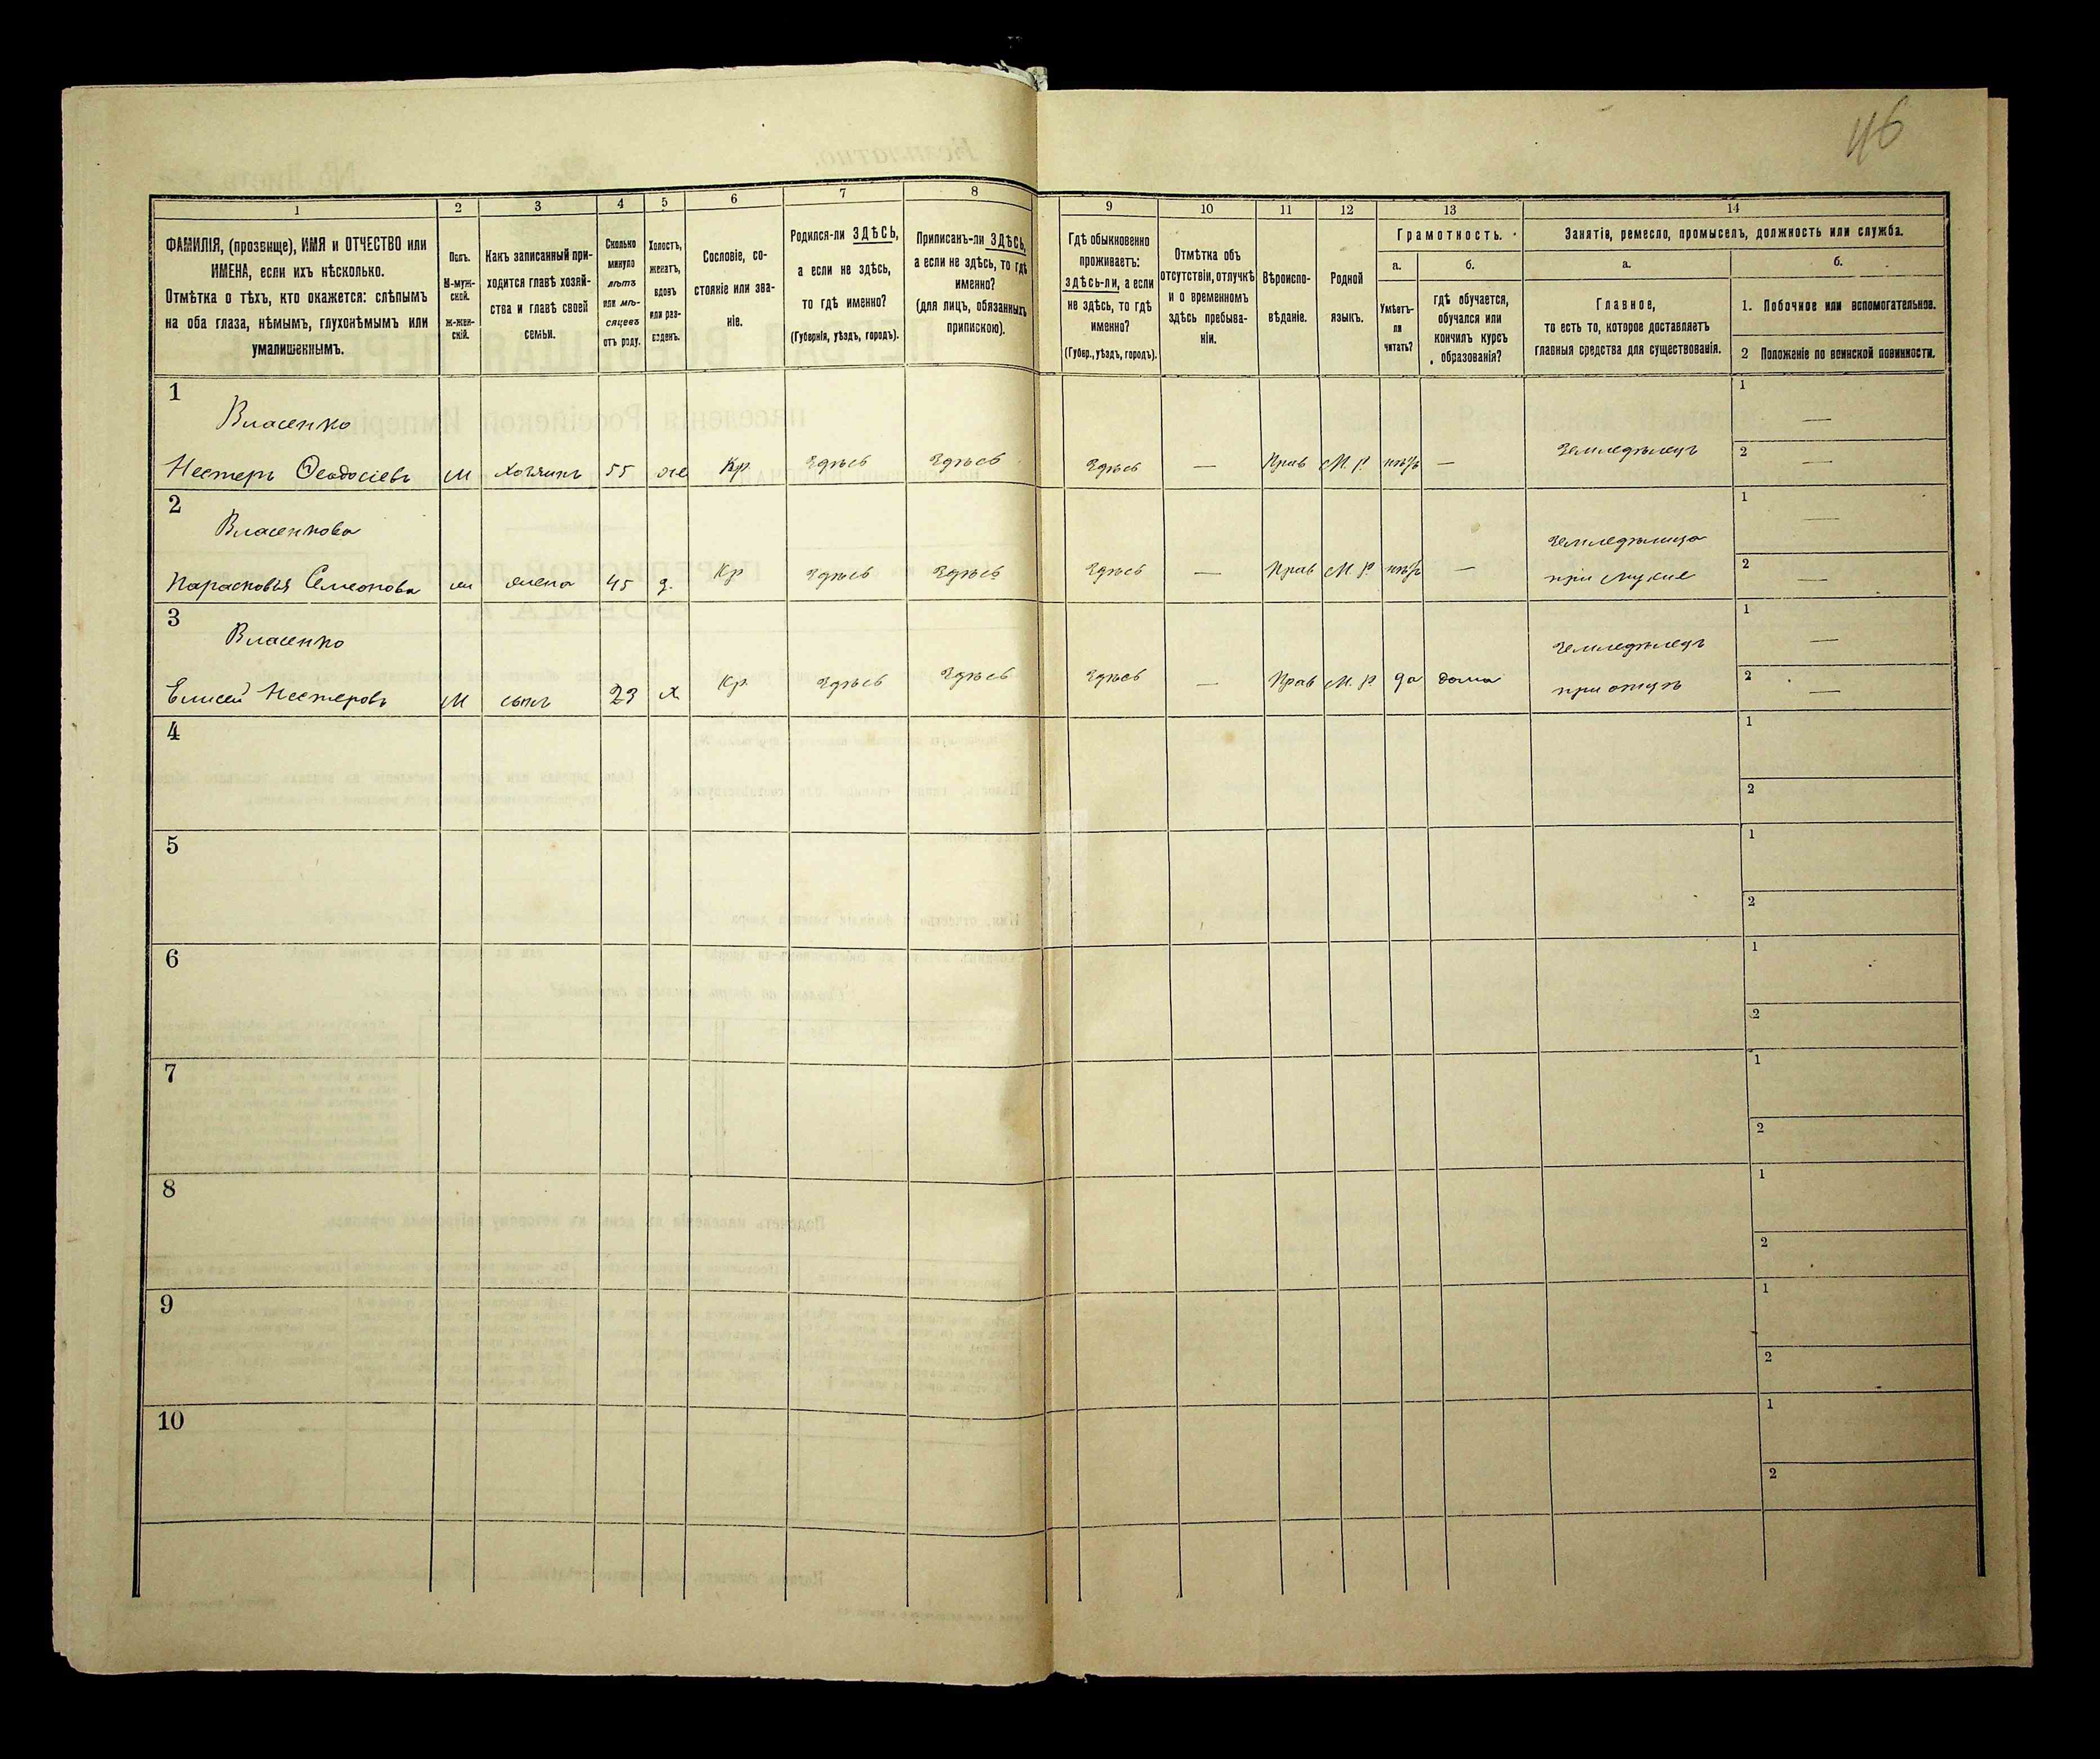 46
1 2 3 4 5 6 7 8 9 10 11 12 13 14
ФАМИЛІЯ, (прозвище), ИМЯ и ОТЧЕСТВО или
ИМЕНА, если ихъ нѣсколько.
Отмѣтка о тѣхъ, кто окажется: слѣпымъ
на оба глаза, нѣмымъ, глухонѣмымъ или
умалишеннымъ.
Полъ.
М-муж-
ской.
Ж-жен-
скій.
Какъ записанный при-
ходится главѣ хозяй-
ства и главѣ своей
семьи.
Сколько
минуло
лѣтъ
или мѣ-
сяцевъ
отъ роду.
Холостъ,
женатъ,
вдовъ
или раз-
веденъ.
Сословіе, со-
стояніе или зва-
ніе.
Родился-ли ЗДѢСЬ,
а если не здѣсь,
то гдѣ именно?
(Губернія, уѣздъ, городъ).
Приписанъ-ли ЗДѢСЬ,
а если не здѣсь, то гдѣ
именно?
(для лицъ, обязанныхъ
припискою).
Гдѣ обыкновенно
проживаетъ:
здѣсь-ли, а если
не здѣсь, то гдѣ
именно?
(Губер., уѣздъ, городъ).
Отмѣтка объ
отсутствіи, отлучкѣ
и о временномъ
здѣсь пребыва-
ніи.
Вѣроиспо-
вѣданіе.
Родной
языкъ.
Грамотность.
а.
Умѣетъ-
ли
читать?
б.
гдѣ обучается,
обучался или
кончилъ курсъ
образованія?
Занятіе, ремесло, промыселъ, должность или служба.
а.
Главное,
то есть то, которое доставляетъ
главныя средства для существованія.
б.
1. Побочное или вспомогательное.
2 Положеніе по воинской повинности.
1
Власенко
Нестеръ Ѳеодосіевъ М хозяинъ 55 же Кр. Здѣсь Здѣсь Здѣсь — Прав М. Р. нѣтъ — Земледѣлецъ
1 —
2 —
2
Власенкова
Парасковія Семеонова ж жена 45 з. Кр Здѣсь Здѣсь Здѣсь — Прав М. Р. нѣтъ — Земледѣлица
при мужѣ
1 —
2 —
3
Власенко
Елисей Нестеровъ М сынъ 23 х Кр. Здѣсь Здѣсь Здѣсь — Прав М. Р. да дома Земледѣлецъ
при отцѣ
1 —
2 —
4
1
2
5
1
2
6
1
2
7
1
2
8
1
2
9
1
2
10
1
2